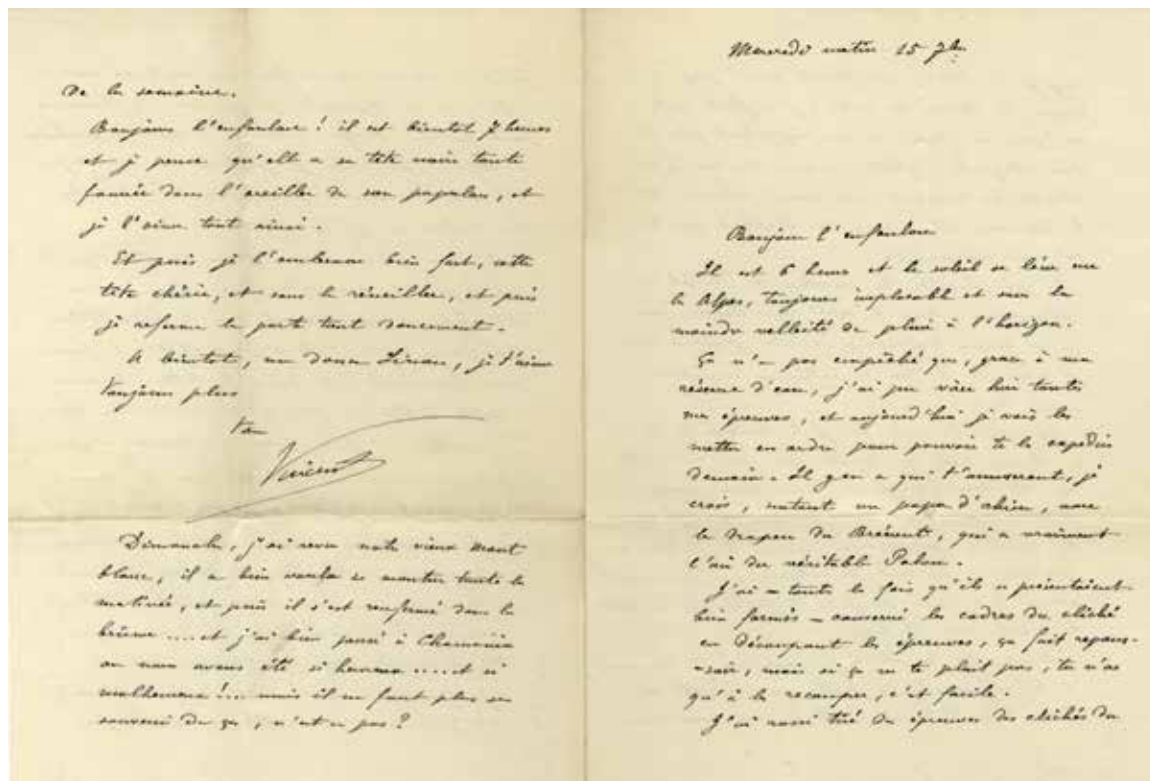 de la semaine.
Bonjour l'enfanlou ! il est bientôt 7 heures
et je pense qu'elle a sa tête noire toute
dans l'oreiller de son, et
je l'aime tant ainsi.
Et puis je l'embrasse bien fort, cette
tête chérie, et sans la réveiller, et puis
je referme la porte tout doucement.
A bientôt, ma douce, je t'aime
toujours plus
ton
Vincent
Dimanche, j'ai revu notre vieux Mont
blanc, il a bien voulu se montrer toute la
matinée, et puis il s'est renfermé dans la
brume .... et j'ai bien pensé à Chamonix
où nous avons été si heureux ..... et si
malheureux !... mais il ne faut plus se
souvenir de ça, n'est ce pas ?
Mercredi matin 15 7bre
Bonjour l'enfanlou
Il est 6 heures et le soleil se lève sur
les Alpes, toujours implacable et sans la
moindre velléité de pluie à l'horizon.
Ça n'a pas empêché que, grâce à ma
réserve d'eau, j'ai pu hier toutes
mes épreuves, et aujourd'hui je vais les
mettre en ordre pour pouvoir te les expédier
demain. Il y en a qui t'amuseront, je
crois, surtout un papa, avec
le drapeau du Brévent, qui a vraiment
l'air du véritable.
J'ai – toutes les fois qu'ils se présentaient
bien formés – conservé les cadres du cliché
en découpant les épreuves, ça fait repous-
-soir, mais si ça ne te plaît pas, tu n'as
qu'à les recouper, c'est facile.
J'ai aussi tiré des épreuves des clichés de